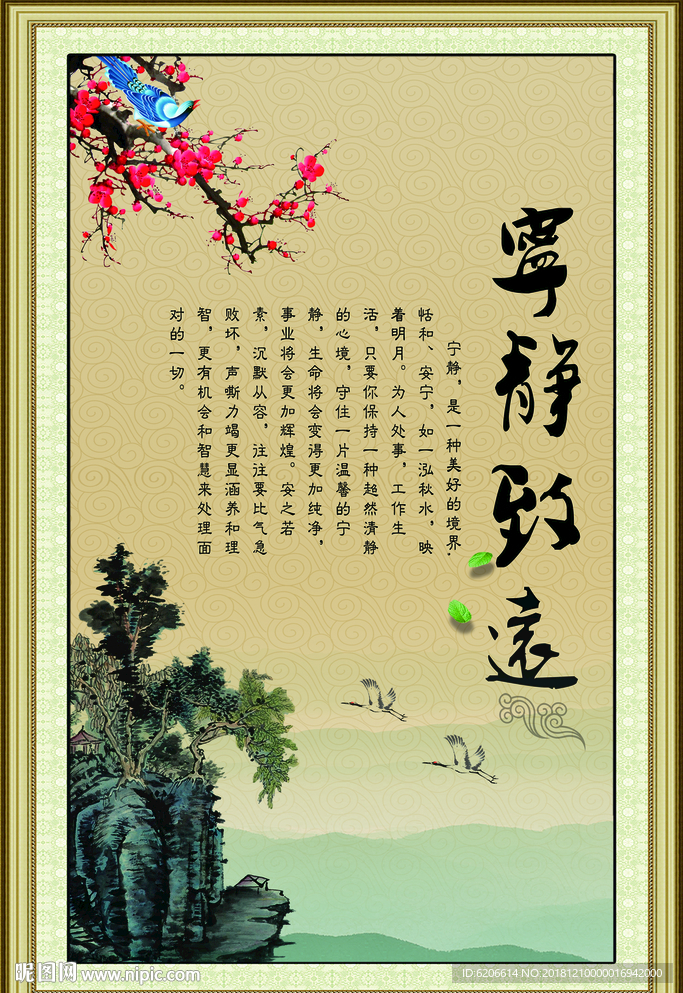 寧靜致遠
宁静，是一种美好的境界.
恬和、安宁，如一泓秋水，映
着明月。为人处事，工作生
活，只要你保持一种超然清静
的心境，守住一片温馨的宁
静，生命将会变得更加纯净，
事业将会更加辉煌。安之若
素，沉默从容，往往要比气急
败坏，声嘶力竭更显涵养和理
智，更有机会和智慧来处理面
对的一切。
昵图网 www.nipic.com
ID:6206614 NO:20181210000016942000